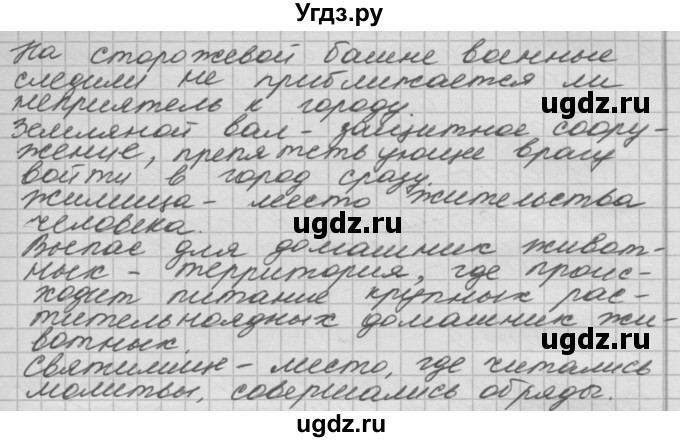 Угдз.ру
На сторожевой башне военные
следили не приближается ли
неприятель к городу.
ugdz.ru
Земляной вал - защитное соору-
жение, препятствующие врагу
войти в город сразу.
Жилища - место жительства
ugdz.ru
человека.
Выпас для домашних живот-
ных - территория, где проис-
ходит питание крупных рас-
ugdz.ru
тительноядных домашних жи-
вотных.
Святилищн - место, где читались
молитвы, совершались обряды.
ugdz.ru
ugdz.ru